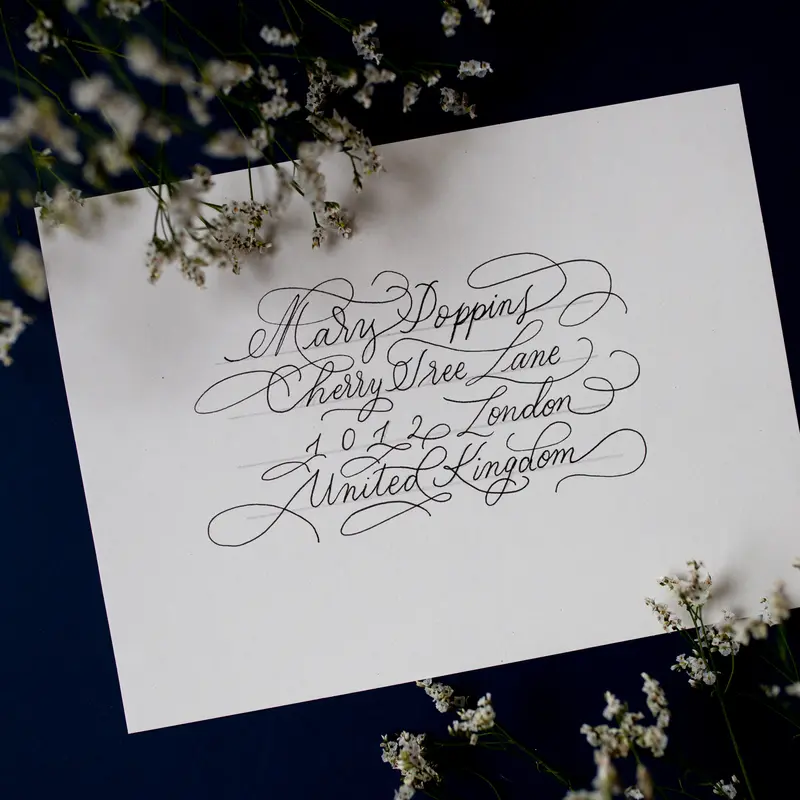 Mary Poppins
Cherry Tree Lane
1012 London
United Kingdom